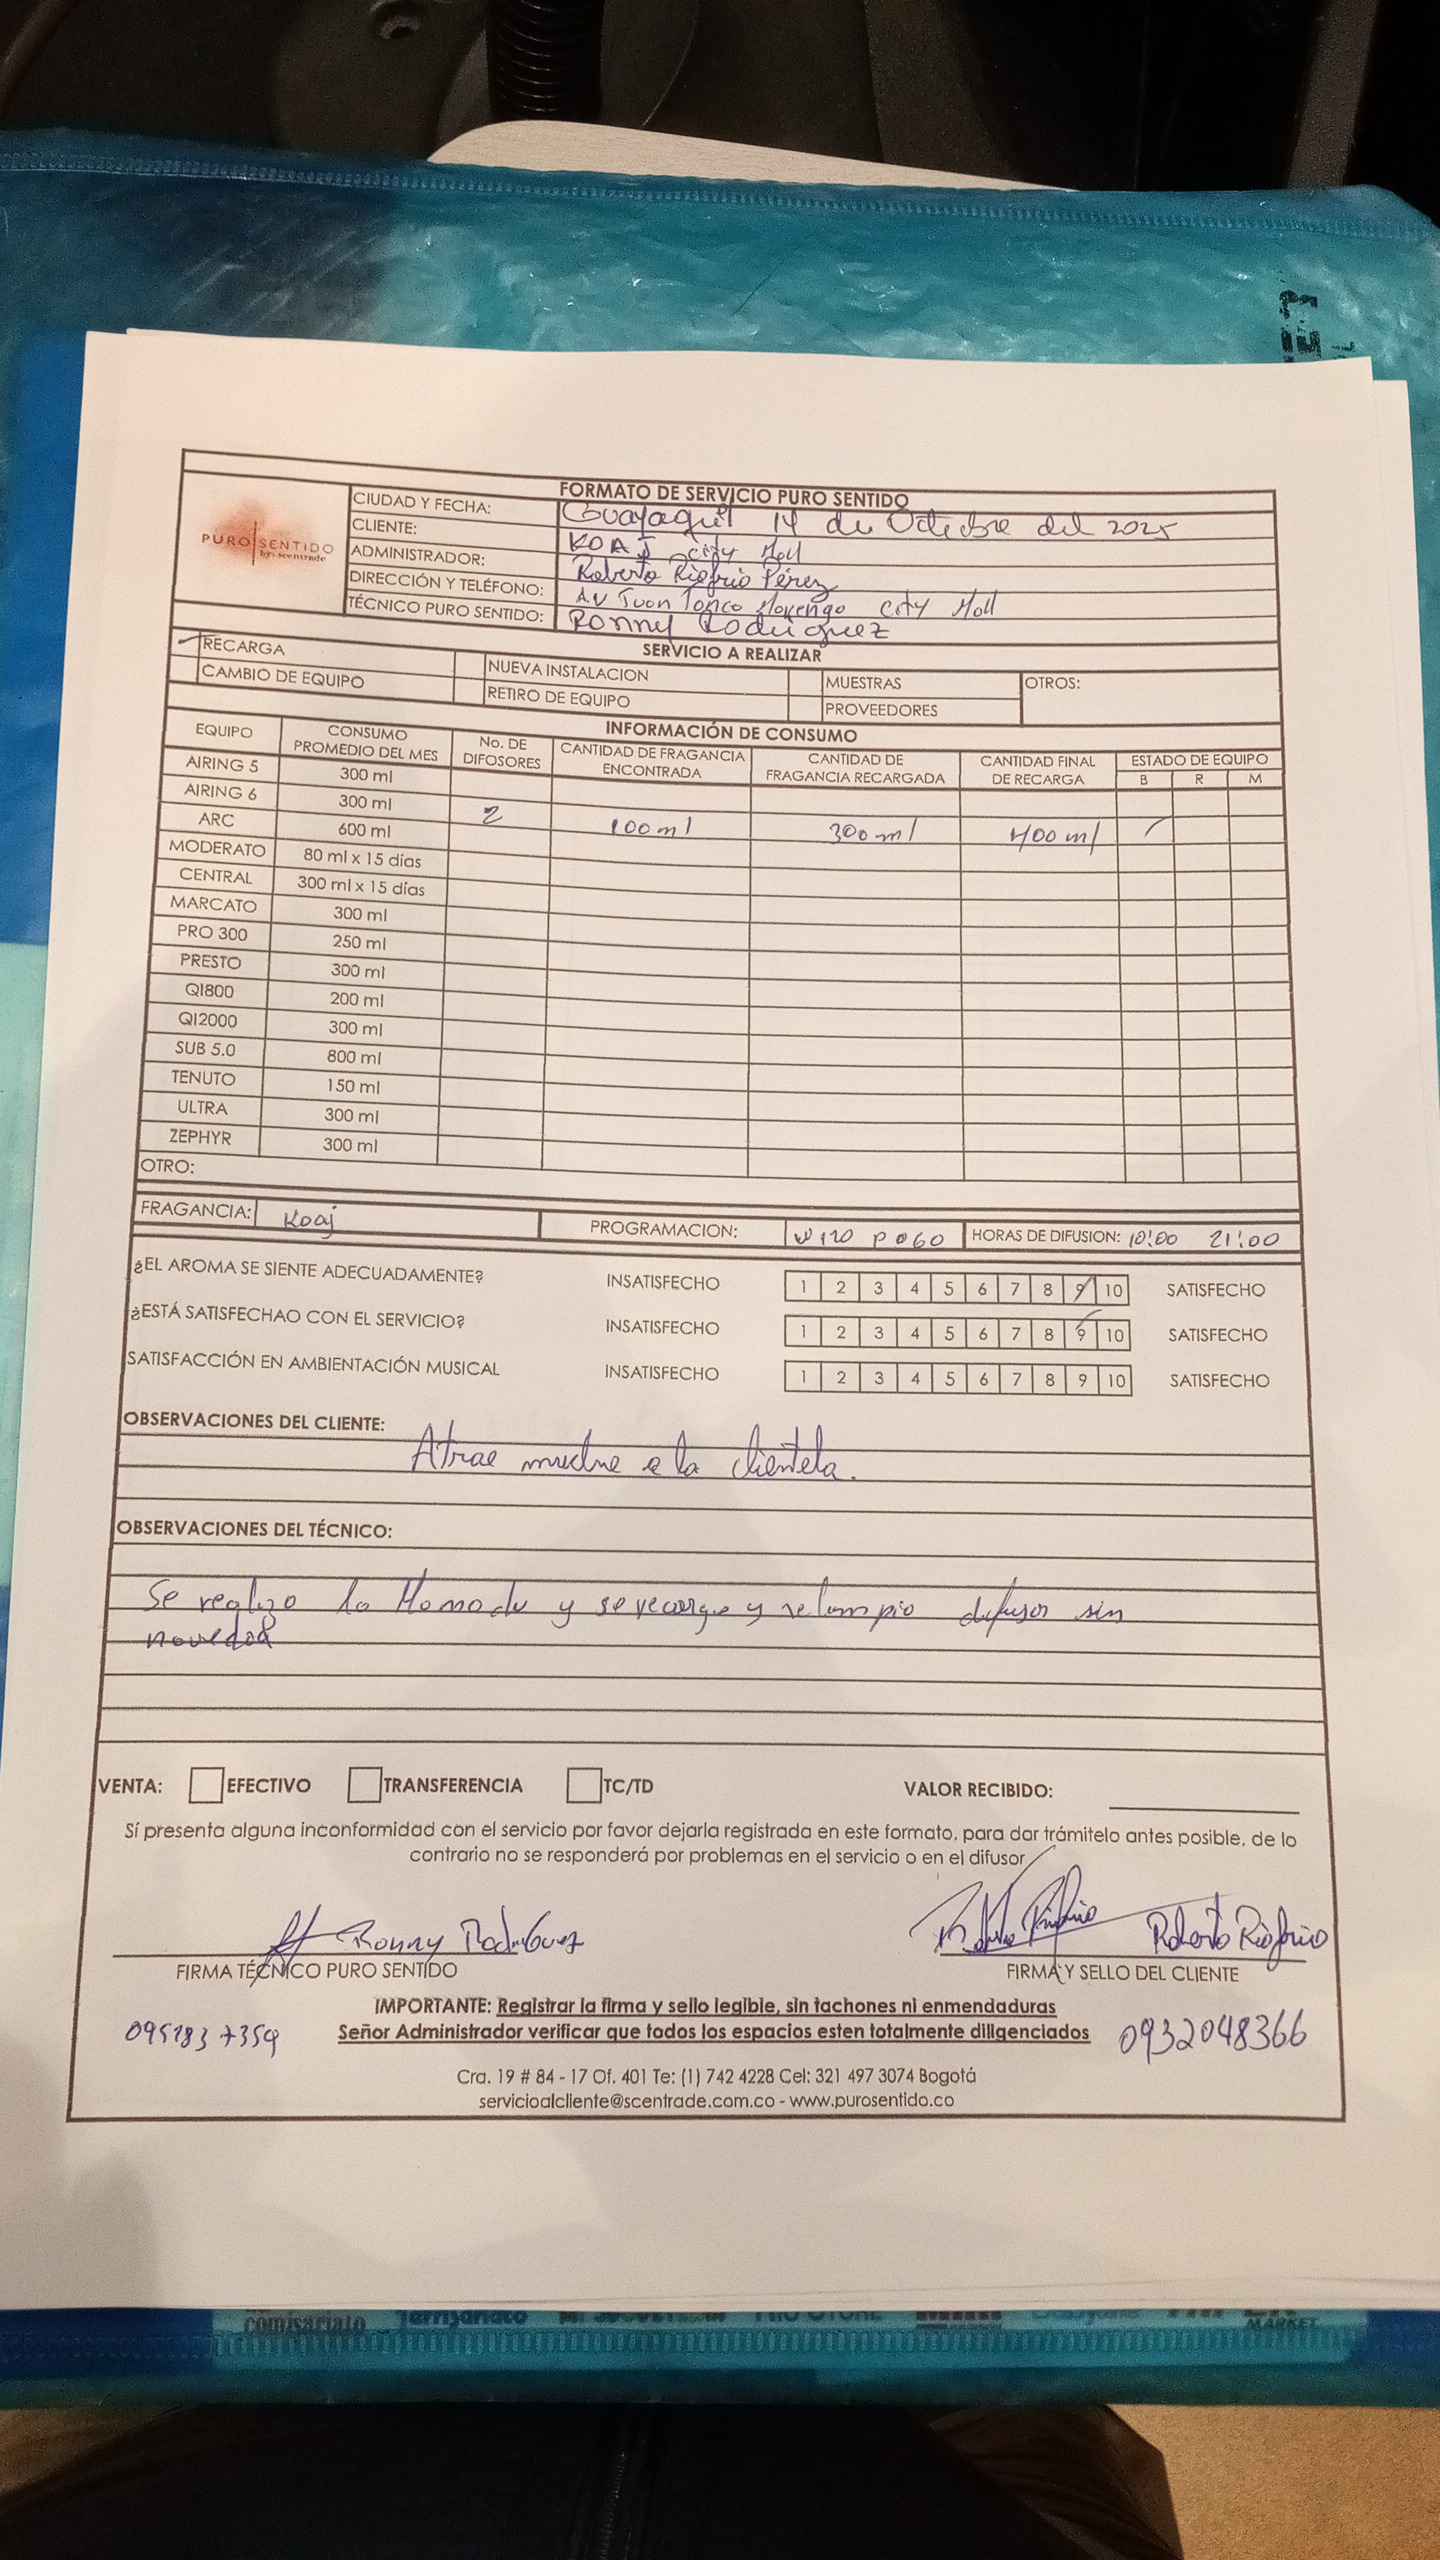 FORMATO DE SERVICIO PURO SENTIDO
PURO SENTIDO
by: scentrade
CIUDAD Y FECHA: Guayaquil 14 de Octubre del 2025
CLIENTE: KOAJ city Mall
ADMINISTRADOR: Roberto Riofrio Pérez
DIRECCIÓN Y TELÉFONO: Av Juan Tanca Marengo City Mall
TÉCNICO PURO SENTIDO: Ronny Rodriguez
SERVICIO A REALIZAR
RECARGA NUEVA INSTALACION MUESTRAS OTROS:
CAMBIO DE EQUIPO RETIRO DE EQUIPO PROVEEDORES
INFORMACIÓN DE CONSUMO
EQUIPO CONSUMO PROMEDIO DEL MES No. DE DIFOSORES CANTIDAD DE FRAGANCIA ENCONTRADA CANTIDAD DE FRAGANCIA RECARGADA CANTIDAD FINAL DE RECARGA ESTADO DE EQUIPO
B R M
AIRING 5 300 ml
AIRING 6 300 ml
ARC 600 ml 2 100 ml 300 ml 400 ml
MODERATO 80 ml x 15 días
CENTRAL 300 ml x 15 días
MARCATO 300 ml
PRO 300 250 ml
PRESTO 300 ml
QI800 200 ml
QI2000 300 ml
SUB 5.0 800 ml
TENUTO 150 ml
ULTRA 300 ml
ZEPHYR 300 ml
OTRO:
FRAGANCIA: Koaj PROGRAMACION: W120 P060 HORAS DE DIFUSION: 10:00 21:00
¿EL AROMA SE SIENTE ADECUADAMENTE? INSATISFECHO 1 2 3 4 5 6 7 8 9 10 SATISFECHO
¿ESTÁ SATISFECHAO CON EL SERVICIO? INSATISFECHO 1 2 3 4 5 6 7 8 9 10 SATISFECHO
SATISFACCIÓN EN AMBIENTACIÓN MUSICAL INSATISFECHO 1 2 3 4 5 6 7 8 9 10 SATISFECHO
OBSERVACIONES DEL CLIENTE:
Atrae mucho a la clientela.
OBSERVACIONES DEL TÉCNICO:
Se realizo la y se recargo y se limpio difusor sin
novedad
VENTA: EFECTIVO TRANSFERENCIA TC/TD VALOR RECIBIDO:
Sí presenta alguna inconformidad con el servicio por favor dejarla registrada en este formato, para dar trámitelo antes posible, de lo
contrario no se responderá por problemas en el servicio o en el difusor
Ronny Rodriguez Roberto Riofrio Roberto Riofrio
FIRMA TÉCNICO PURO SENTIDO FIRMA Y SELLO DEL CLIENTE
IMPORTANTE: Registrar la firma y sello legible, sin tachones ni enmendaduras
Señor Administrador verificar que todos los espacios esten totalmente diligenciados
0951837359 0932048366
Cra. 19 # 84 - 17 Of. 401 Te: (1) 742 4228 Cel: 321 497 3074 Bogotá
servicioalcliente@scentrade.com.co - www.purosentido.co
comisariato
MARKET